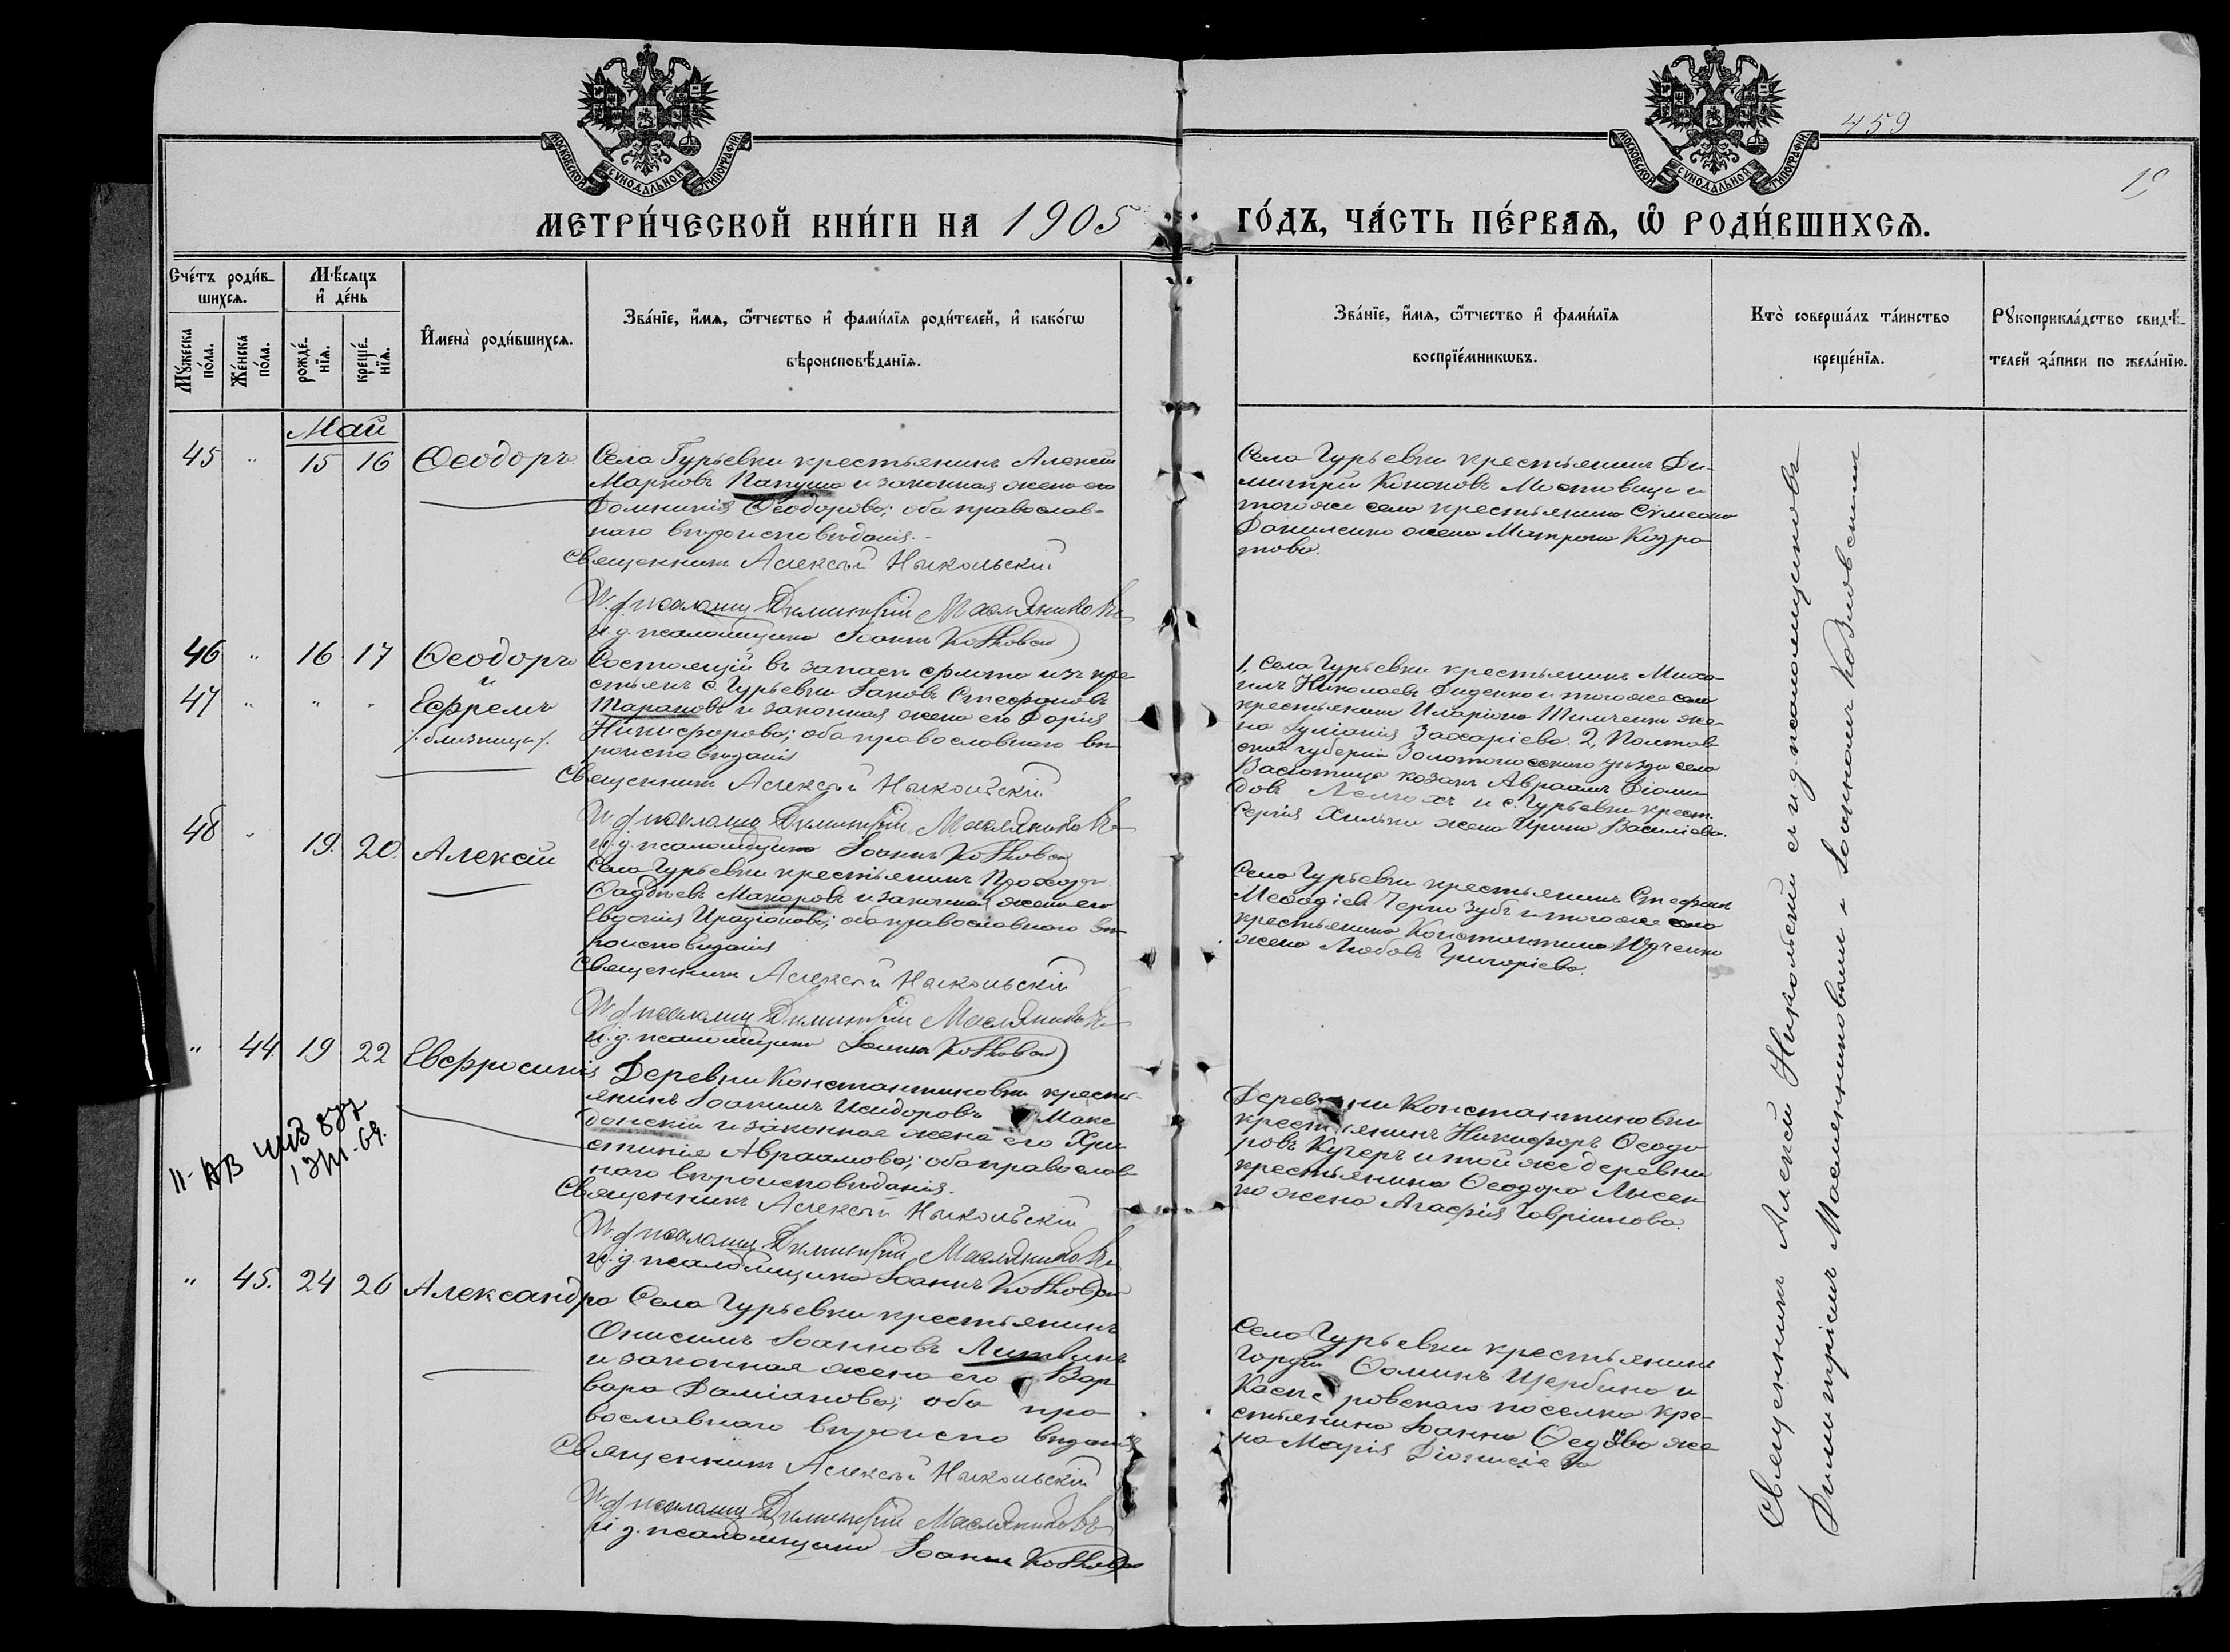 459
19
МОСКОВСКОЙ СѴНОДАЛЬНОЙ ТИПОГРАФІИ
МОСКОВСКОЙ СѴНОДАЛЬНОЙ ТИПОГРАФІИ
МЕТРИ́ЧЕСКОЙ КНИ́ГИ НА 1905 ГО́ДЪ, ЧА́СТЬ ПЕ́РВАѦ, Ѡ҆ РОДИ́ВШИХСѦ.
Сче́тъ роди́в-
шихсѧ.
Мѣ́сѧцъ
и҆ де́нь
Мꙋ́жеска
по́ла.
Же́нска
по́ла.
рожде́-
нїѧ.
креще́-
нїѧ.
И҆мена̀ роди́вшихсѧ.
Зва́нїе, и҆́мѧ, ѻ҆́тчество и҆ фами́лїѧ роди́телей, и҆ како́гѡ
вѣроисповѣ́данїѧ.
Зва́нїе, и҆́мѧ, ѻ҆́тчество и҆ фами́лїѧ
воспрїе́мникѡвъ.
Кто̀ соверша́лъ та́инство
креще́нїѧ.
Рꙋкоприкла́дство свидѣ́-
телей за́писи по жела́нїю.
Май
45 " 15 16 Ѳеодоръ
Села Гурьевки крестьянинъ Алексѣй
Марковъ Папуша и законная жена его
Домникія Ѳеодорова; оба православ-
наго вѣроисповѣданія.
Священникъ Алексѣй Никольскій
И. д. псаломщ Димитрій Масляниковъ
и. д. псаломщика Іоаннъ Козловскій
Села Гурьевки крестьянинъ Ди-
митрій Кононовъ Мостовица и
того же села крестьянина Сѵмеона
Даниленко жена Матрона Кодра-
това.
46 " 16 17 Ѳеодоръ
и
47 " " " Ефремъ
/близнецы/.
Состоящій въ запасѣ флота изъ кре-
стьянъ с. Гурьевки Іаковъ Стефановъ
Тарановъ и законная жена его Дарія
Никифорова; оба православнаго вѣ-
роисповѣданія
Священникъ Алексѣй Никольскій
И. д. псаломщ Димитрій Масляниковъ
и. д. псаломщика Іоаннъ Козловскій
1, Села Гурьевки крестьянинъ Миха-
илъ Николаевъ Диденко и того же села
крестьянина Иларіона Тимченко же-
на Іуліанія Захаріева. 2, Полтав-
ской губерніи Золотоношскаго уѣзда села
козакъ Авраамъ Діоми-
довъ и с. Гурьевки крест.
Сергія Хилька жена Ирина Василіева.
48 " 19. 20. Алексѣй
Села Гурьевки крестьянинъ Прохоръ
Ѳаддѣевъ Макаровъ и законная жена его
Евдокія Иродіонова; оба православнаго вѣ-
роисповѣданія
Священникъ Алексѣй Никольскій
И. д. псаломщ Димитрій Масляниковъ
и. д. псаломщика Іоаннъ Козловскій
Села Гурьевки крестьянинъ Стефанъ
Меѳодіевъ Чернозубъ и того же села
крестьянина Константина Юрченко
жена Любовь Григоріева.
" 44. 19 22 Евфросинія
Деревни Константиновки кресть-
янинъ Іоакимъ Исидоровъ Маке-
донскій и законная жена его Хри-
стинія Авраамова; оба православ-
наго вѣроисповѣданія.
Священникъ Алексѣй Никольскій
И. д. псаломщ Димитрій Масляниковъ
и. д. псаломщика Іоаннъ Козловскій
Деревни Константиновки
крестьянинъ Никифоръ Ѳеодо-
ровъ Кучеръ и той же деревни
крестьянина Ѳеодора Лысен-
ко жена Агафія Гавріилова.
" 45. 24 26 Александра
Села Гурьевки крестьянинъ
Онисимъ Іоанновъ Литвинъ
и законная жена его Вар-
вара Даміанова; оба пра-
вославнаго вѣроисповѣданія
Священникъ Алексѣй Никольскій
И. д. псаломщ Димитрій Масляниковъ
и. д. псаломщика Іоаннъ Козловскій
Села Гурьевки крестьянинъ
Гордій Ѳоминъ Щербина и
Касперовскаго поселка кре-
стьянина Іоанна Ѳедова же-
на Марія Діонисіева
Священникъ Алексѣй Никольскій съ и. д. псаломщиковъ
Димитріемъ Маслянниковымъ и Іоанномъ Козловскимъ